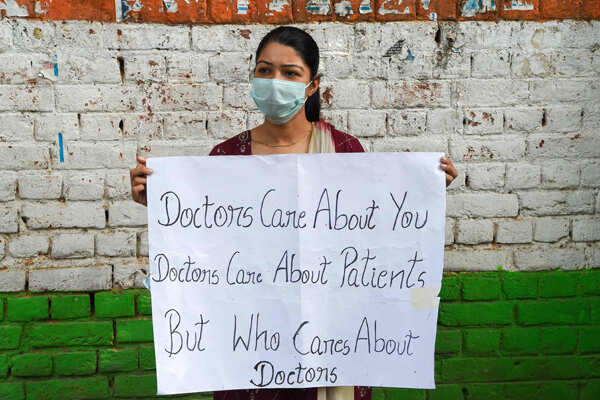 Doctors Care About You
Doctors Care About Patients
But Who Cares About
Doctors